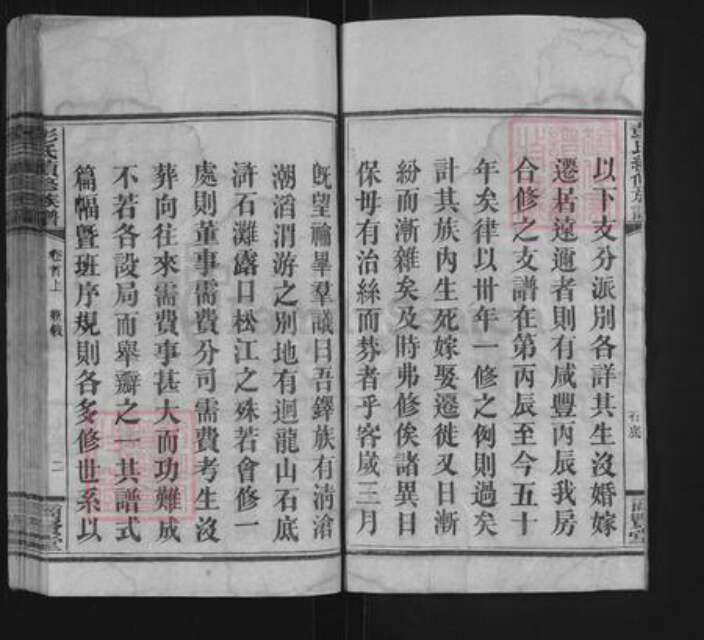 以下支分派別各詳其生沒婚嫁
遷居遠邇者則有咸豐丙辰我房
合修之支譜在第丙辰至今五十
年矣律以卅年一修之例則過矣
計其族內生死嫁娶遷徙又日漸
紛而漸雜矣及時弗修俟諸異日
保毋有治絲而棼者乎客歲三月
既望禴畢羣議曰吾鐸族有清滄
潮滔渭游之別地有迴龍山石底
滸石灘露口松江之殊若會修一
處則董事需費分司需費考生沒
葬向往來需費事甚大而功難成
不若各設局而舉辦之一其譜式
篇幅暨班序規則各多修世系以
彭氏續修族譜
卷首上
二